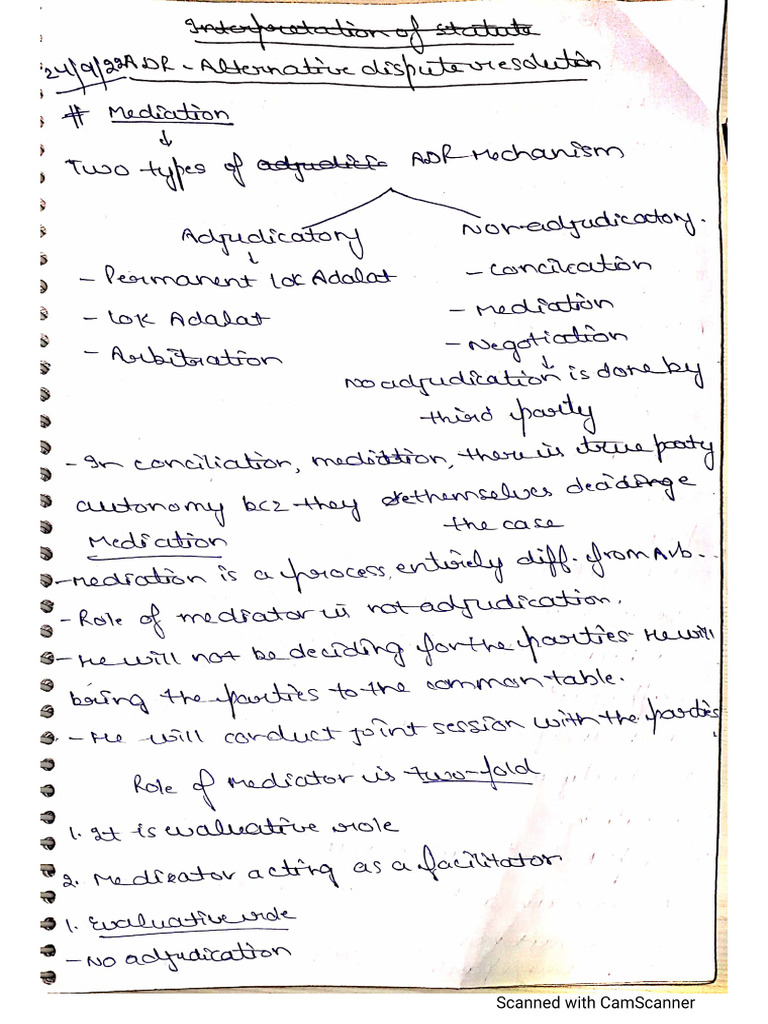 Interpretation of statute
24/9/22 ADR - Alternative dispute resolution
# Mediation
↓
Two types of adjudictic ADR Mechanism
Adjudicatory Non-adjudicatory.
↓
- Permanent lok Adalat - conciliation
- lok Adalat - Mediation
- Arbitration - Negotiation
↓
No adjudication is done by
third party
- In conciliation, mediation, there is true party
autonomy bcz they themselves decide
the case
Mediation
- mediation is a process, entirely diff. from Arb.
- Role of mediator is not adjudication.
- He will not be deciding for the parties He will
bring the parties to the common table.
- He will conduct joint session with the parties
Role of Mediator is two-fold
1. It is evaluative role
2. Mediator acting as a facilitator
1. Evaluative role
- No adjudication
Scanned with CamScanner